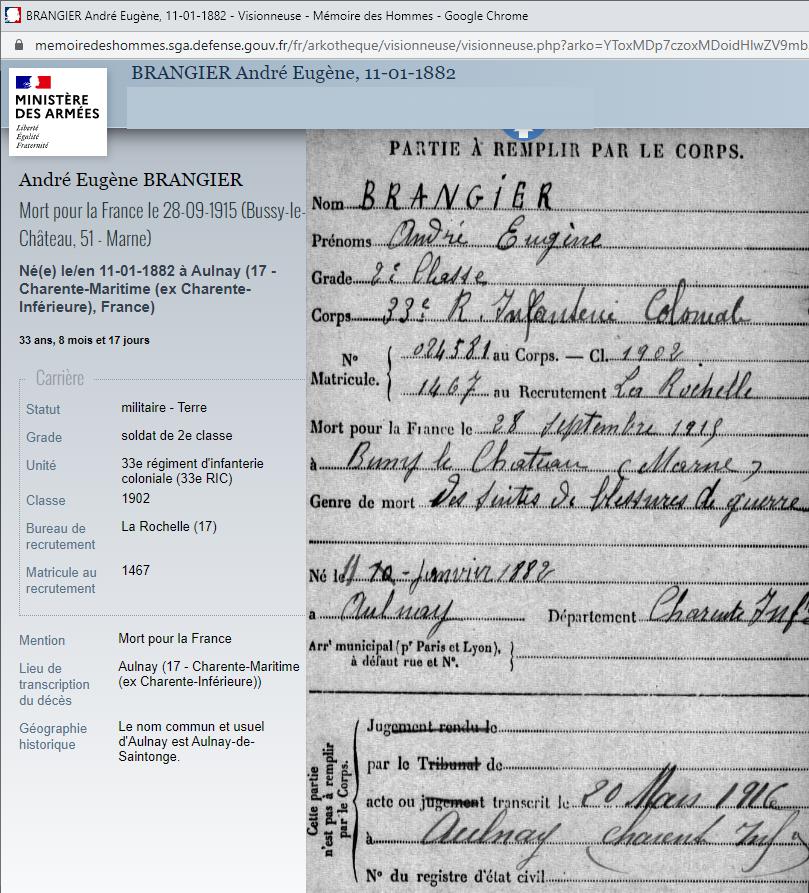 BRANGIER André Eugène, 11-01-1882 - Visionneuse - Mémoire des Hommes - Google Chrome
memoiredeshommes.sga.defense.gouv.fr/fr/arkotheque/visionneuse/visionneuse.php?arko=YToxMDp7czoxMDoidHlwZV9mb
BRANGIER André Eugène, 11-01-1882
MINISTÈRE
DES ARMÉES
Liberté
Égalité
Fraternité
André Eugène BRANGIER
Mort pour la France le 28-09-1915 (Bussy-le-
Château, 51 - Marne)
Né(e) le/en 11-01-1882 à Aulnay (17 -
Charente-Maritime (ex Charente-
Inférieure), France)
33 ans, 8 mois et 17 jours
Carrière
Statut militaire - Terre
Grade soldat de 2e classe
Unité 33e régiment d'infanterie
coloniale (33e RIC)
Classe 1902
Bureau de La Rochelle (17)
recrutement
Matricule au 1467
recrutement
Mention Mort pour la France
Lieu de Aulnay (17 - Charente-Maritime
transcription (ex Charente-Inférieure))
du décès
Géographie Le nom commun et usuel
historique d'Aulnay est Aulnay-de-
Saintonge.
PARTIE À REMPLIR PAR LE CORPS.
Nom BRANGIER
Prénoms André Eugène
Grade 2e Classe
Corps 33e R. Infanterie Colonial
N° 024581 au Corps. — Cl. 1902
Matricule. 1467 au Recrutement La Rochelle
Mort pour la France le 28 septembre 1915
à Bussy le Chateau (Marne)
Genre de mort des suites de blessures de guerre
Né le 11 10 - Janvier 1882
a Aulnay Département Charente Inf
Arrt municipal (pr Paris et Lyon),
à défaut rue et N°.
Cette partie
n'est pas à remplir
par le Corps.
Jugement rendu le
par le Tribunal de
acte ou jugement transcrit le 20 Mars 1916
à Aulnay Charent Inf
N° du registre d'état civil